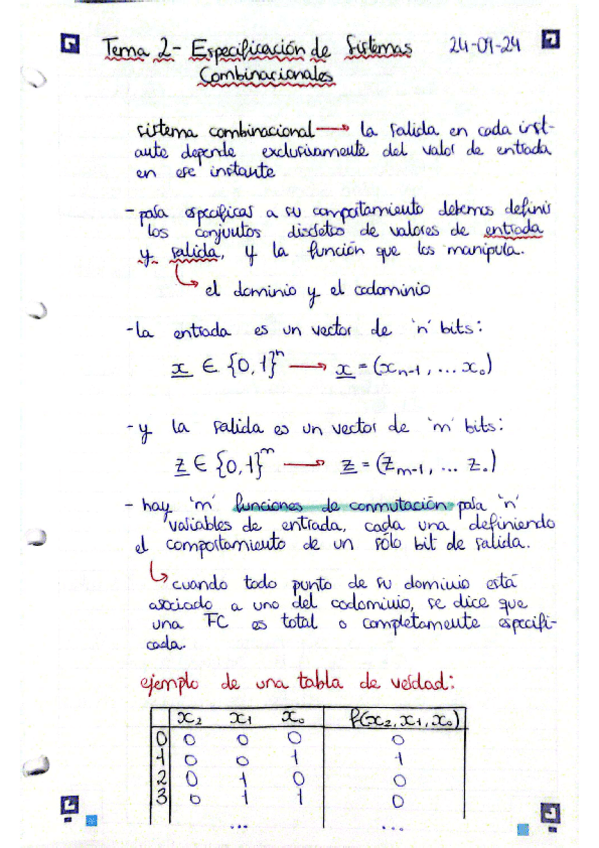 Tema 2- Especificación de Sistemas 24-09-24
Combinacionales
sistema combinacional → la salida en cada inst-
ante depende exclusivamente del valor de entrada
en ese instante
- para especificar a su comportamiento debemos definir
los conjuntos discretos de valores de entrada
y salida, y la función que los manipula.
el dominio y el codominio
- la entrada es un vector de 'n' bits:
x ∈ {0,1}ⁿ → x = (xₙ₋₁, ... x₀)
- y la salida es un vector de 'm' bits:
z ∈ {0,1}ᵐ → z = (zₘ₋₁, ... z₀)
- hay 'm' funciones de conmutación para 'n'
variables de entrada, cada una definiendo
el comportamiento de un sólo bit de salida.
cuando todo punto de su dominio está
asociado a uno del codominio, se dice que
una FC es total o completamente especifi-
cada.
ejemplo de una tabla de verdad:
x₂ x₁ x₀ f(x₂, x₁, x₀)
0 0 0 0 0
1 0 0 1 1
2 0 1 0 0
3 0 1 1 0
... ...